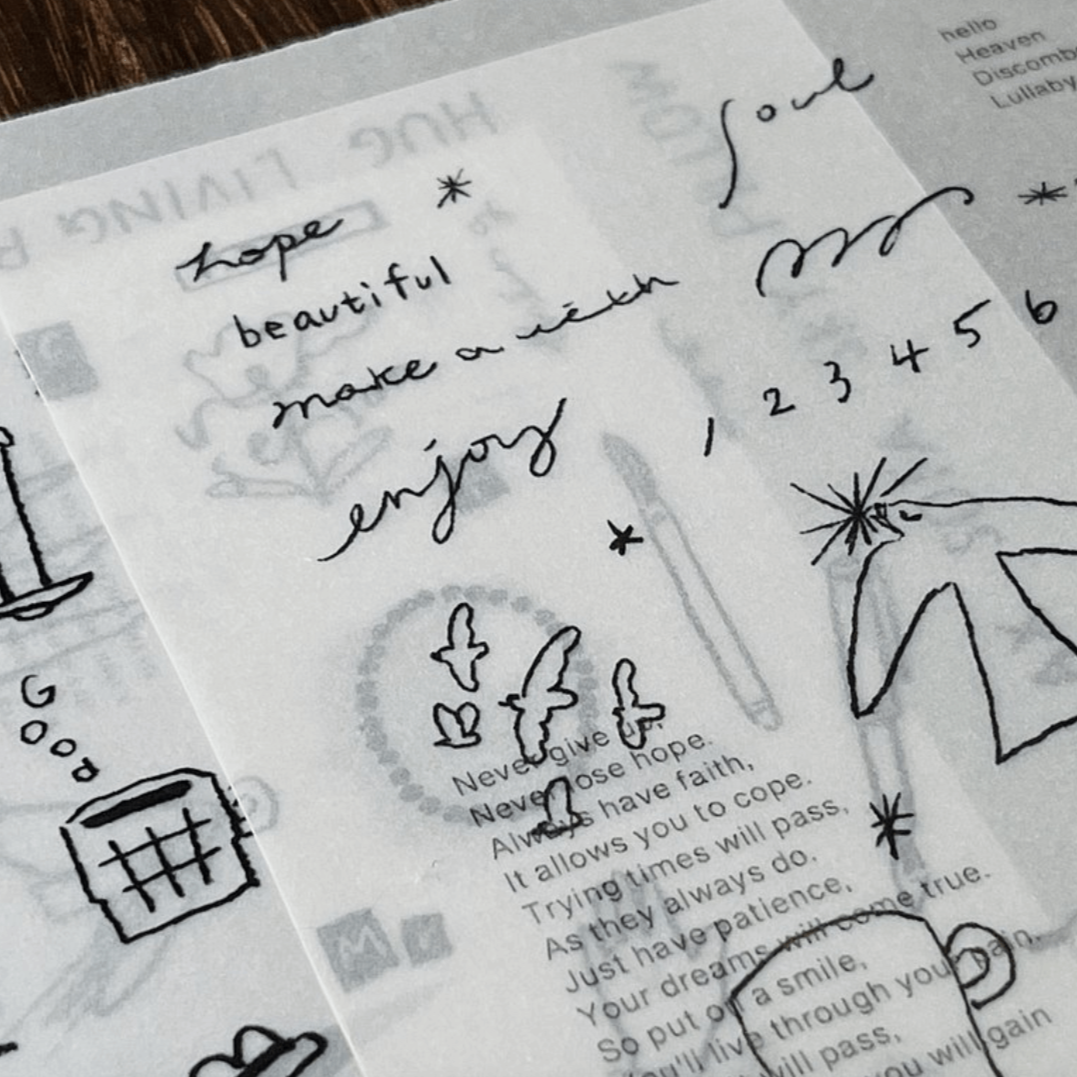 hello
Heaven
Lullaby
soul
HUG LIVING
hope
beautiful
make a with
enjoy
1 2 3 4 5 6
Never give up,
Never lose hope.
Always have faith,
It allows you to cope.
Trying times will pass,
As they always do.
Just have patience,
Your dreams will come true.
So put on a smile,
You'll live through your pain.
will pass,
you will gain